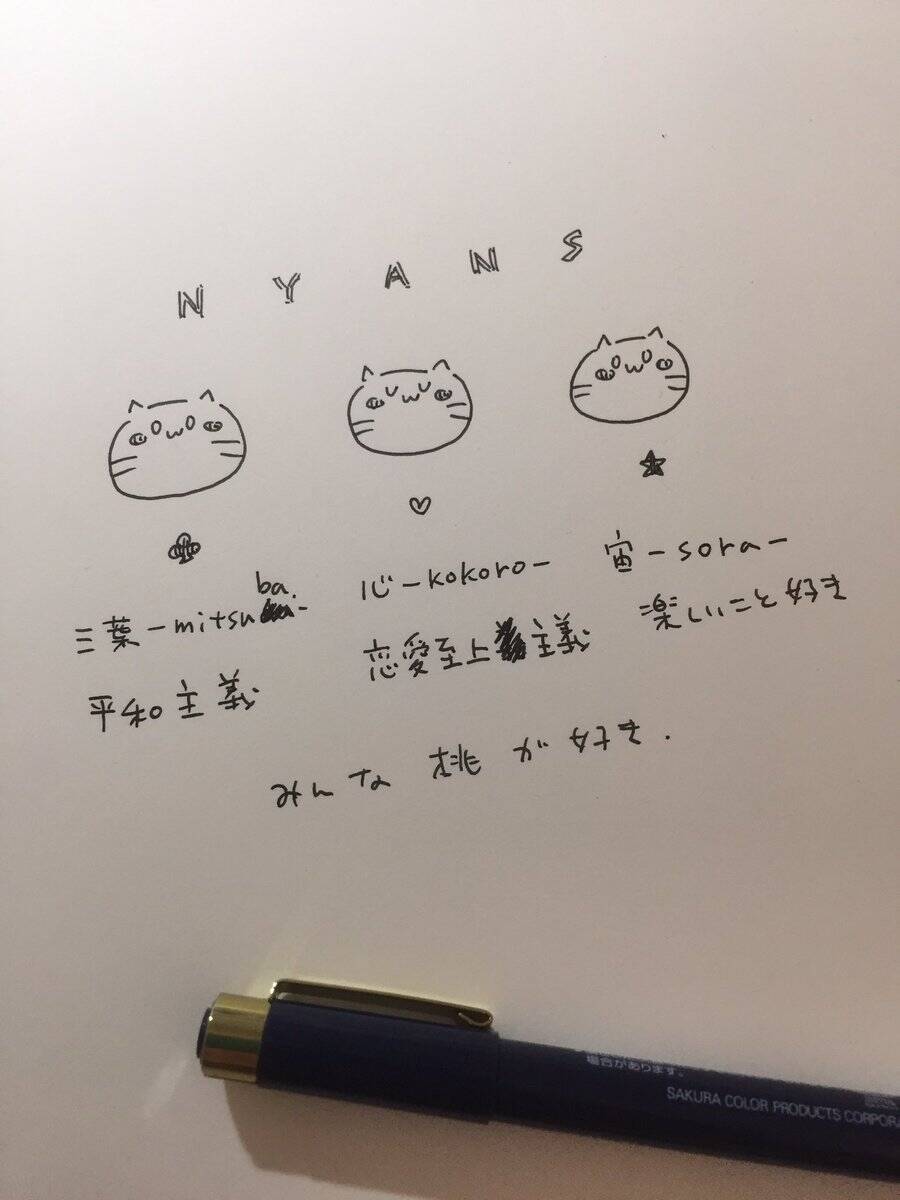 NYANS
三葉-mitsuba.-
平和主義
心-kokoro-
恋愛至上主義
宙-sora-
楽しいこと好き
みんな 桃が好き.
場合があります。
SAKURA COLOR PRODUCTS CORPORA